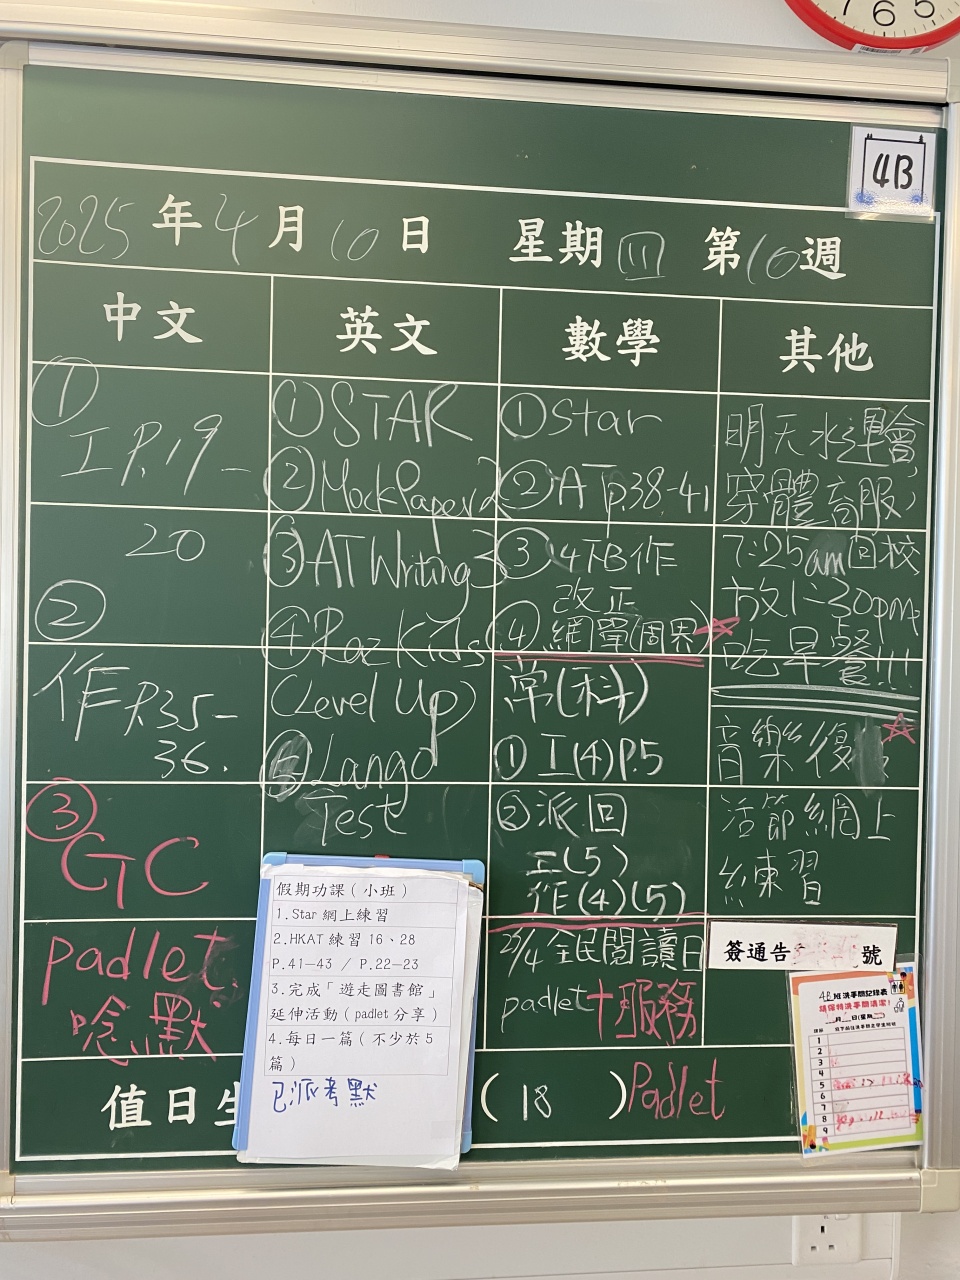 7 6 5
4B
2025年4月10日 星期四 第10週
中文
① 工 P.19-
20
②
作 P.35-
36.
③ GC
padlet
唸默
英文
① STAR
② Mock Paper 2
③ AT Writing 3
④ Raz Kids
(Level Up)
⑤ Lango
Test
數學
① Star
② AT p.38-41
③ 4下B作
改正
④ 網單(周界)
常(科)
① 工(4)P.5
② 派回
工(5)
作(4)(5)
23/4 全民閱讀日
padlet+服務
其他
明天水運會,
穿體育服,
7:25am回校
放1-30pm,
吃早餐!!!
音樂復
活節網上
練習
簽通告 號
假期功課(小班)
1.Star 網上練習
2.HKAT 練習 16、28
P.41-43 / P.22-23
3.完成「遊走圖書館」
延伸活動(padlet 分享)
4.每日一篇(不少於 5
篇)
已派考默
值日生 (18) Padlet
4B班洗手間記錄表
請保持洗手間清潔!
月 日(星期 )
1
2
3
4
5
6
7
8
9